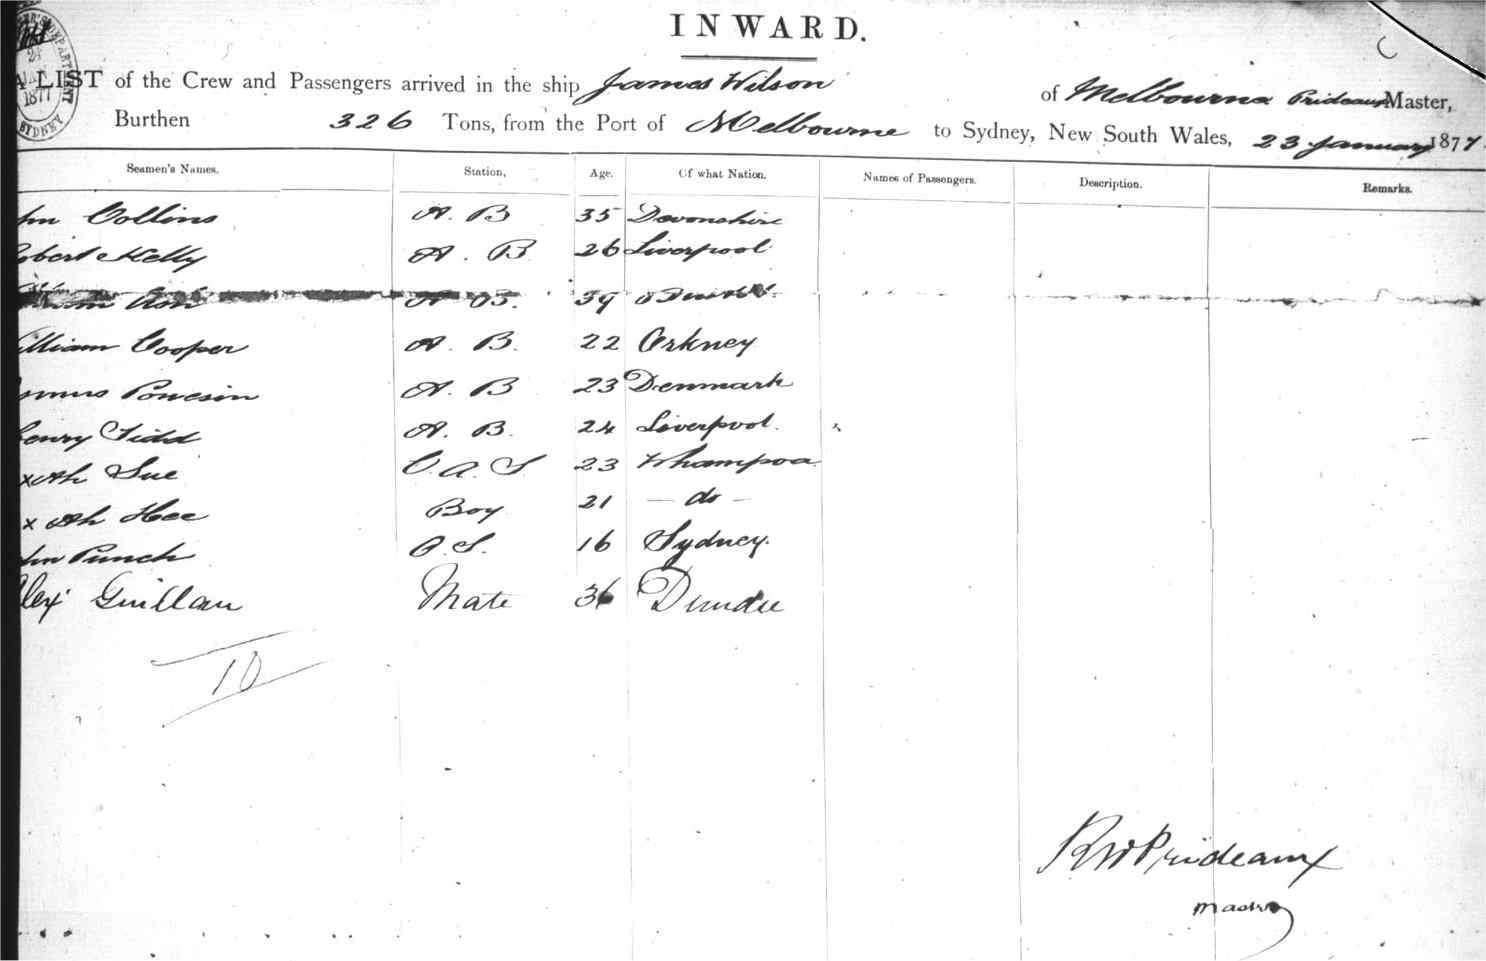 INWARD.
A LIST of the Crew and Passengers arrived in the ship James Wilson of Melbourne Prideaux Master,
Burthen 326 Tons, from the Port of Melbourne to Sydney, New South Wales, 23 January 1877
Seamen's Names. Station, Age. Of what Nation. Names of Passengers. Description. Remarks.
hn Collins A. B 35 Devonshire
obert Kelly A. B 26 Liverpool
Ash 39
illiam Cooper A. B. 22 Orkney
A. B 23 Denmark
enry Tidd A. B. 24 Liverpool.
x Ah Sue C. a. S 23 Whampoa
x Ah Hee Boy 21 — do —
hn Punch O. S. 16 Sydney.
lex Guillan Mate 36 Dundee
10
RW Prideaux
Master
1877
SYDNEY